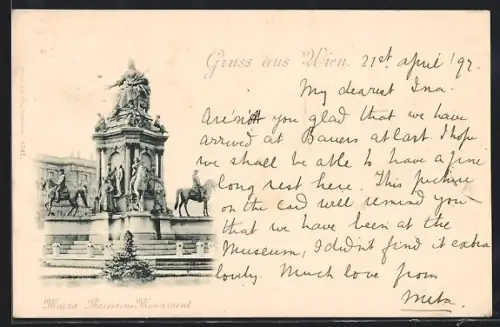 Gruss aus Wien.
21st april '97.
My dearest Ina.
Are'nt you glad that we have
arrived at Bauers at last. I hope
we shall be able to have a fine
long rest here. This picture
on the card will remind you
that we have been at the
Museum, I didn't find it extra
lovely. Much love from
Meta.
Maria Theresien-Monument